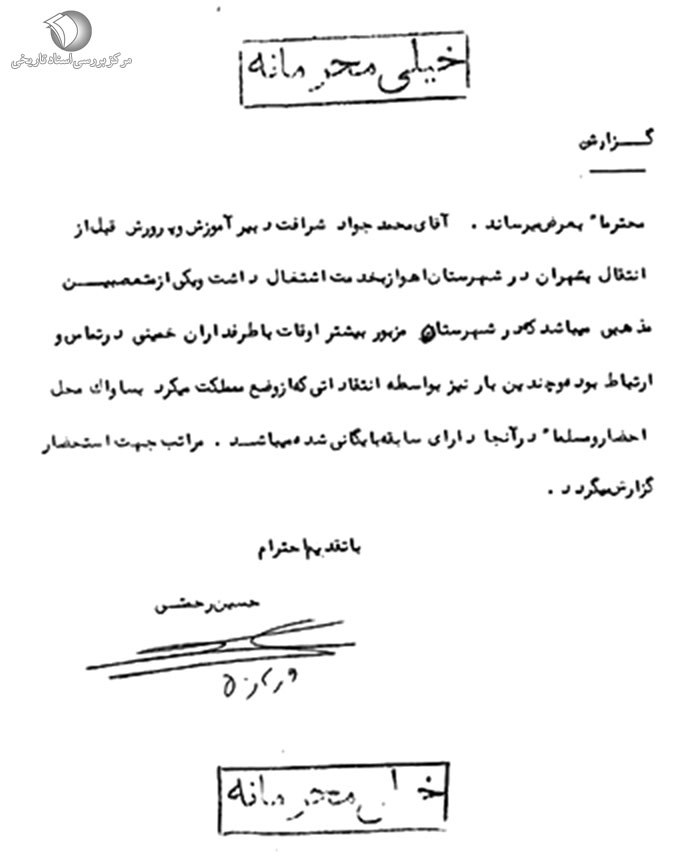 مرکز بررسی اسناد تاریخی
خیلی محرمانه
گزارش
محترما" بعرض میرساند . آقای محمد جواد شرافت دبیر آموزش وپرورش قبل از
انتقال بتهران در شهرستان اهواز بخدمت اشتغال داشت ویکی از متعصبین
مذهبی میباشد که در شهرستان مزبور بیشتر اوقات با طرفداران خمینی در تماس و
ارتباط بوده و چندین بار نیز بواسطه انتقاداتی که از وضع مملکت میکرد بساواک محل
احضار و مسلما" در آنجا دارای سابقه بایگانی شده میباشد . مراتب جهت استحضار
گزارش میگردد .
با تقدیم احترام
حسین رحمتی
خیلی محرمانه